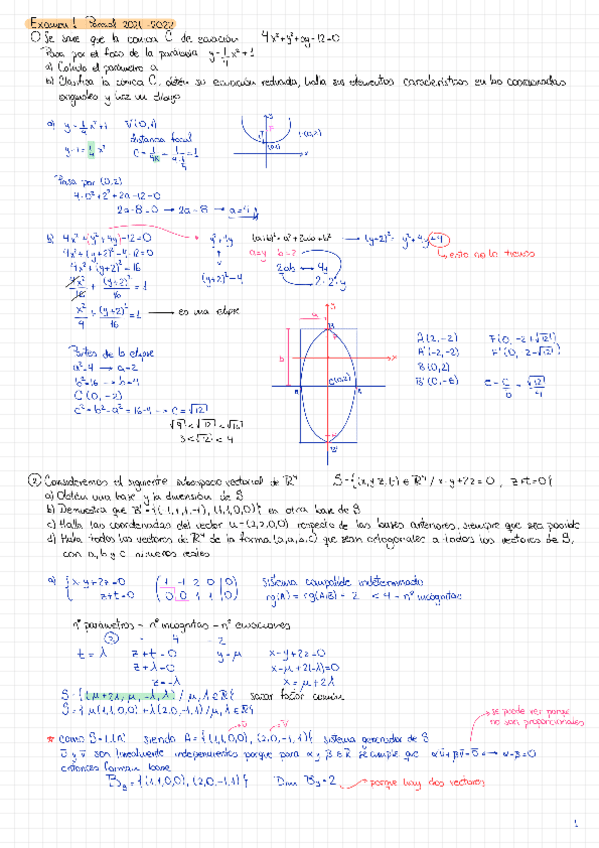 Examen 1 Parcial 2021-2022
① Se sabe que la conica C de ecuación 4x²+y²+ay-12=0
Pasa por el foco de la parabola y=1/4 x²+1
a) Calcula el parametro a
b) Clasifica la conica C, obtén su ecuación reducida, halla sus elementos característicos en las coordenadas
originales y haz un dibujo
a) y=1/4 x²+1 V(0,1)
distancia focal
y-1=1/4 x² C=1/4k=1/(4·1/4)=1
F(0,2)
Pasa por (0,2)
4·0²+2²+2a-12=0
2a-8=0 → 2a=8 → a=4
b) 4x²+(y²+4y)-12=0 y²+4y (a+b)²=a²+2ab+b² → (y+2)²= y²+4y+4
4x²+(y+2)²-4-12=0 a=y b=2 ↳ esto no lo tenemos
4x²+(y+2)²=16 (y+2)²-4 2ab → 4y
2·2·y
4x²/16+(y+2)²/16=1
x²/4+(y+2)²/16=1 → es una elipse
Partes de la elipse
a²=4 → a=2
b²=16 → b=4
C(0,-2)
c²=b²-a²=16-4 → c=√12
√9<√12<√16
3<√12<4
A(2,-2) F(0,-2+√12)
A'(-2,-2) F'(0,-2-√12)
B(0,2)
B'(0,-6) e=c/b=√12/4
② Consideremos el siguiente subespacio vectorial de R⁴ S={(x,y,z,t)∈R⁴/x-y+2z=0, z+t=0}
a) Obtén una base y la dimensión de S
b) Demuestra que B'={(-1,1,1,-1),(1,1,0,0)} es otra base de S
c) Halla las coordenadas del vector u=(2,2,0,0) respecto de las bases anteriores, siempre que sea posible
d) Halla todos los vectores de R⁴ de la forma (a,a,a,c) que sean ortogonales a todos los vectores de S,
con a, b y c números reales
a) {x-y+2z=0 (1 -1 2 0 | 0) sistema compatible indeterminado
z+t=0 (0 0 1 1 | 0) rg(A)=rg(A|B)=2 < 4=nº incognitas
nº parámetros = nº incognitas - nº ecuaciones
② = 4 - 2
t=λ z+t=0 y=μ x-y+2z=0
z+λ=0 x-μ+2(-λ)=0
z=-λ x=μ+2λ
S={(μ+2λ,μ,-λ,λ)/μ,λ∈R} sacar factor común
S={μ(1,1,0,0)+λ(2,0,-1,1)/μ,λ∈R}
se puede ver porque
no son proporcionales
* como S=L(A) siendo A={(1,1,0,0),(2,0,-1,1)} sistema generador de S
ū y v̄ son linealmente independientes porque para α y β∈R se cumple que αū+βv̄=0̄ ↔ α=β=0
entonces forman base
Bs={(1,1,0,0),(2,0,-1,1)} Dim Bs=2 → porque hay dos vectores
1